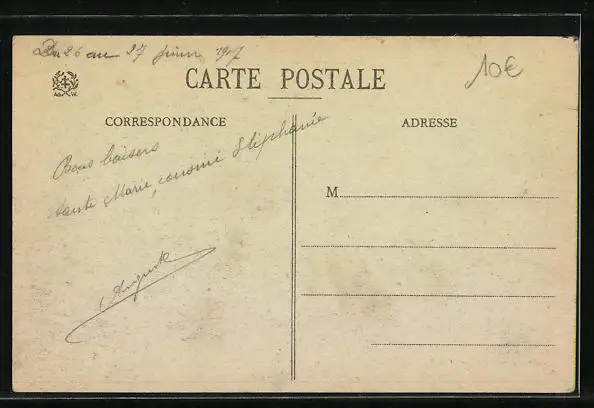 Du 26 au 27 juin 1917
10€
CARTE POSTALE
CORRESPONDANCE
ADRESSE
Bons baisers
tante Marie, cousine Stéphanie
M
Auguste